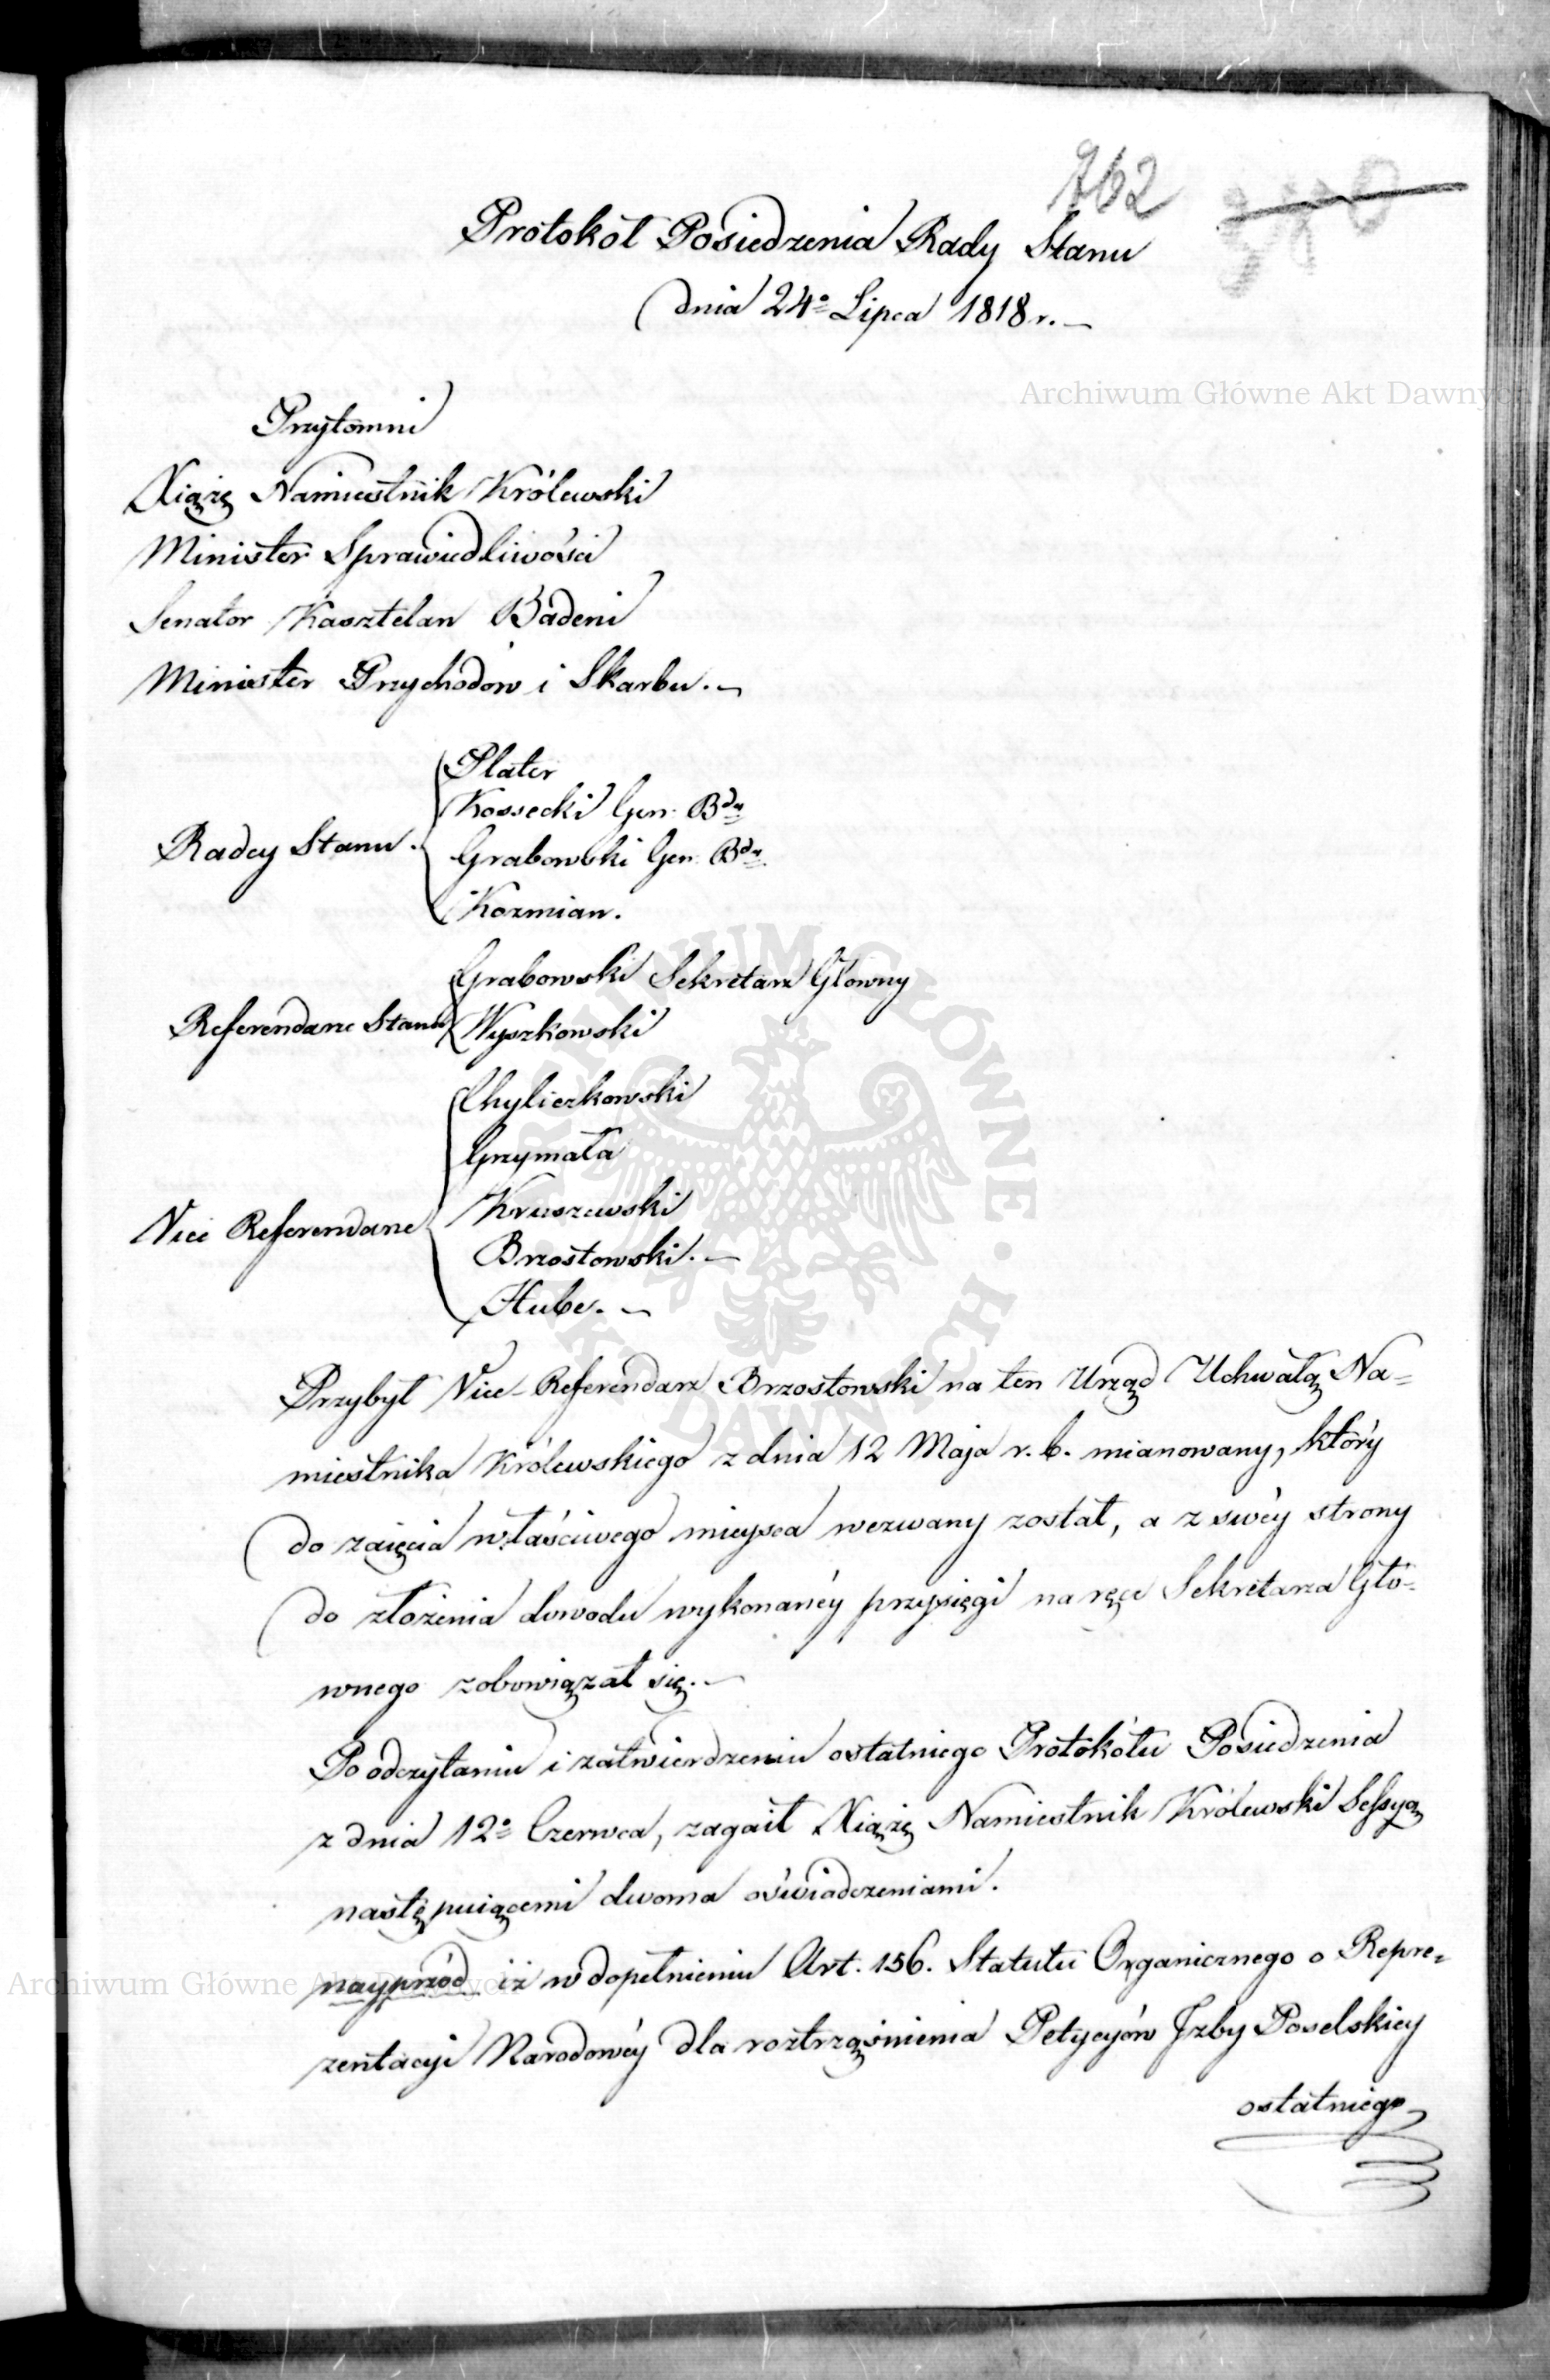 762
Protokół Posiedzenia Rady Stanu
dnia 24º Lipca 1818 r.
Archiwum Główne Akt Dawnych
Przytomni
Xiążę Namiestnik Królewski
Minister Sprawiedliwości
Senator Kasztelan Badeni
Minister Przychodow i Skarbu.
Radcy Stanu.
Plater
Kossecki Gen. Bdy
Grabowski Gen. Bdy
Kozmian.
Referendarze Stanu
Grabowski Sekretarz Głowny
Wyszkowski
Vice Referendarze
Chyliczkowski
Grzymała
Kruszewski
Brzostowski.
Hube.
Przybył Vice-Referendarz Brzostowski na ten Urząd Uchwałą Na=
miestnika Królewskiego z dnia 12 Maja r. b. mianowany, który
do zaięcia właściwego mieysca wezwany został, a z swéy strony
do złożenia dowodu wykonanéy przysięgi na ręce Sekretarza Głó=
wnego zobowiązał się.
Po odczytaniu i zatwierdzeniu ostatniego Protokółu Posiedzenia
z dnia 12º Czerwca, zagaił Xiążę Namiestnik Królewski Sessyą
następuiącemi dwoma oświadczeniami.
nayprzód iż w dopełnieniu Art. 156. Statutu Organicznego o Repre=
zentacyi Narodowéy dla roztrząśnienia Petycyów Izby Poselskiey
ostatniego
Archiwum Główne Akt Dawnych
ARCHIWUM GŁÓWNE AKT DAWNYCH